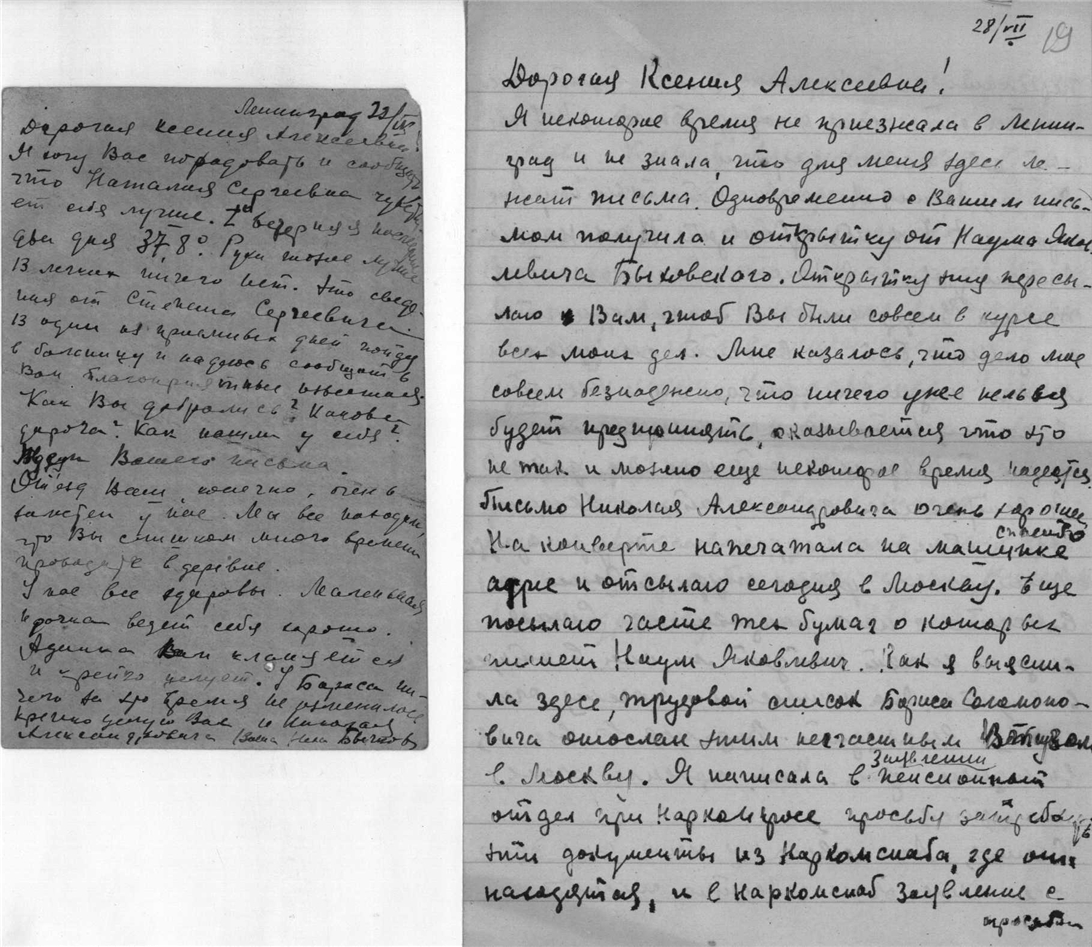 Ленинград 23/IX
Дорогая Ксения Алексеевна!
Я могу Вас порадовать и сообщить
что Наталия Сергеевна чувству-
ет себя лучше. вечерняя последние
два дня 37,8°. Руки тоже лучше
В легких ничего нет. Это сведе-
ния от Степана Сергеевича.
В один из приемных дней пойду
в больницу и надеюсь сообщить
Вам благоприятные известия.
Как Вы добрались? Какова
дорога? Как нашли у себя?
Жду Вашего письма.
От'езд Ваш, конечно, очень
заметен у нас. Мы все находим,
что Вы слишком много времени
проводите в деревне.
У нас все здоровы. Маленькая
ведет себя хорошо.
Вам кланяется
и крепко целует. У Бориса ни-
чего за это время не изменилось
Крепко целую Вас и Николая
Александровича Ваша Бычков
28/VII 19
Дорогая Ксения Алексеевна!
Я некоторое время не приезжала в Ленин-
град и не знала, что для меня здесь ле-
жат письма. Одновременно с Вашим пись-
мом получила и открытку от Наума Яко-
влевича Быховского. Открытку эту пересы-
лаю Вам, чтоб Вы были совсем в курсе
всех моих дел. Мне казалось, что дело мое
совсем безнадежно, что ничего уже нельзя
будет предпринять, оказывается что это
не так и можно еще некоторое время надеяться
Письмо Николая Александровича очень хорошее
спасибо
На конверте напечатала на машинке
адрес и отсылаю сегодня в Москву. Еще
посылаю часть тех бумаг о которых
пишет Наум Яковлевич. Как я выясни-
ла здесь, трудовой список Бориса Соломоно-
вича отослан этим несчастным
в Москву. Я написала в пенсионный
заявление
отдел при Наркомпросе просьбу затребовать
эти документы из Наркомснаба, где они
находятся, и в Наркомснаб заявление с
просьбой